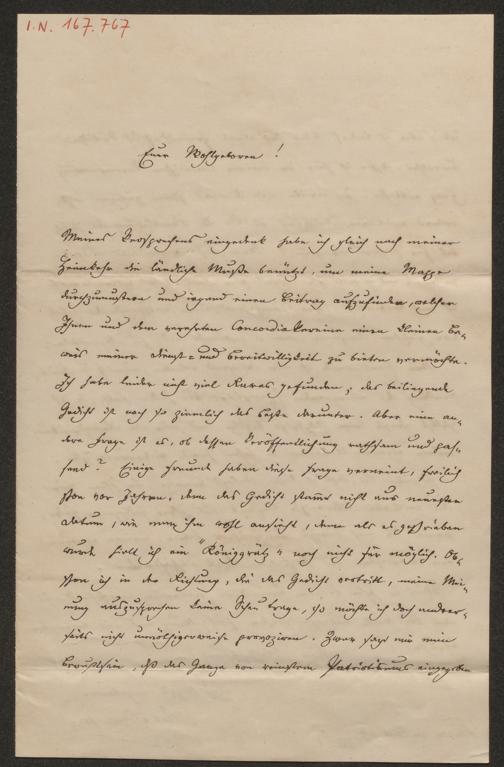 I.N. 167.767
Euer Wohlgeboren!
Meines Versprechens eingedenk habe ich gleich nach meiner
Heimkehr die ländliche Muße benützt, um meine Mappe
durchzumustern und irgend einen Beitrag aufzufinden, welcher
Ihnen und dem verehrten Concordia Vereine einen kleinen Be-
weis meiner Dienst- und Bereitwilligkeit zu bieten vermöchte.
Ich habe leider nicht viel Rares gefunden; das beiliegende
Gedicht ist noch so ziemlich das beste darunter. Aber eine an-
dere Frage ist es, ob dessen Veröffentlichung rathsam und pas-
send? Einige Freunde haben diese Frage verneint, freilich
schon vor Jahren, denn das Gedicht stammt nicht aus neuesten
Datum, wie man ihm wohl ansieht, denn als es geschrieben
wurde hielt ich ein "Königgrätz" noch nicht für möglich. Ob-
schon ich in der Richtung, die das Gedicht vertritt, meine Mei-
nung auszusprechen keine Scheu trage, so möchte ich doch andrer-
seits nicht unnöthigerweise provoziren. Zwar sagt mir mein
Bewußtsein, daß das Ganze von reinstem Patriotismus eingegeben